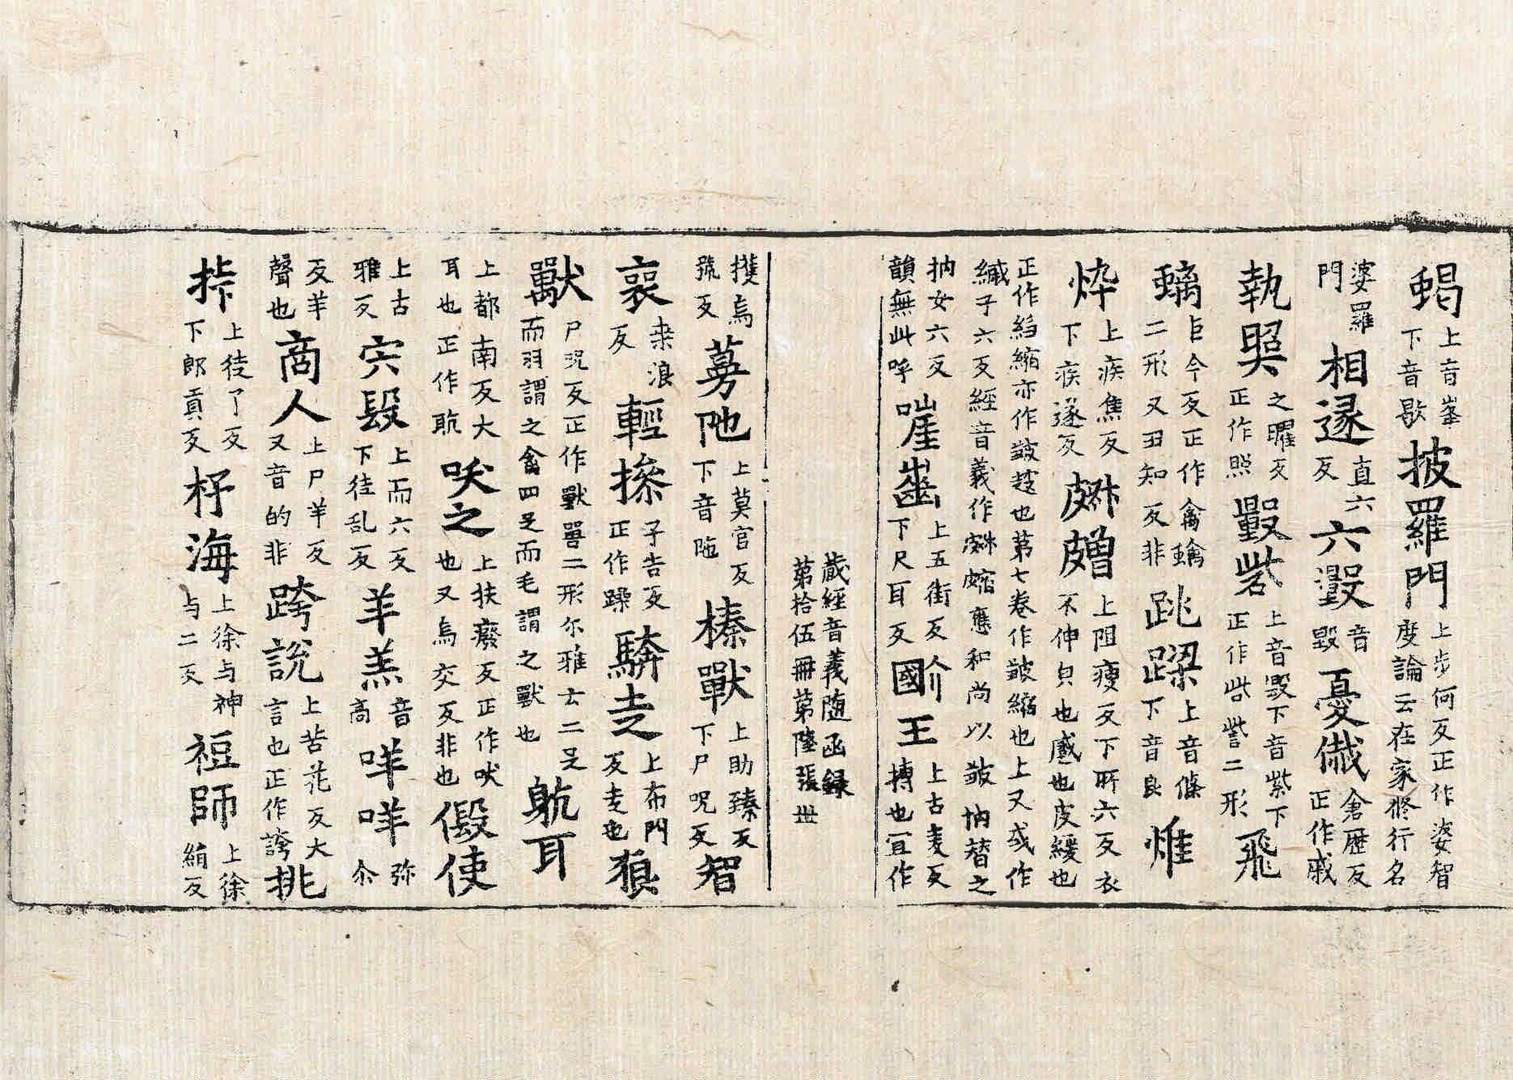 蝎上音峯下音歇披羅門上步何反正作婆智度論云在家修行名
婆羅門相遂直六反六毀音毀憂㒖倉歷反正作戚
執㷖之曜反正作照毀呰上音毀下音紫下正作呰訾二形飛
䗲巨今反正作禽䗲二形又丑知反非跳踩上音條下音良燋
悴上疾焦反下疾遂反皺上阻瘦反下所六反衣不伸皃也慼也皮緩也
正作縐縮亦作皺也第七卷作皺縮也上又或作
緎子六反經音義作應和尚以皺㧱替之
㧱女六反韻無此呼啀齒上五街反下尺耳反國王上古麦反摶也宜作
藏經音義随函録第拾伍冊第陸張世
擭烏號反蓩吔上莫官反下音陁榛戰上助臻反下尸呪反智
哀桒浪反輕搽子告反正作躁騎走上布門反走也狼
獸尸況反正作獸嘼二形尔雅云二足而羽謂之禽四足而毛謂之獸也躭耳
上都南反大耳也正作躭吠之上扶癈反正作吠也又烏交反非也假使
上古雅反宍段上而六反下徒乱反羊羔音高咩咩弥尒
反羊聲也商人上尸羊反又音的非跨說上苦花反大言也正作誇挑
㧡上徒了反下郎貢反杼海上徐与神与二反短師上徐絹反